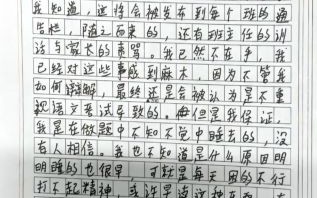 我知道，这将会被发布到每个班的通
告栏，随之而来的，还有班主任的训
诂与家长的责骂。我已然不在乎，我
已经对这些事感到麻木，因为不管我
如何辩解，最终还是会被认为是不重
视语文考试导致的。但是我保证，
我是在做题中不知不觉中睡去的，没
有人相信。我也不知道是什么原因明
明睡的也很早，可就是每天困的不行
打不起精神，或许是这种